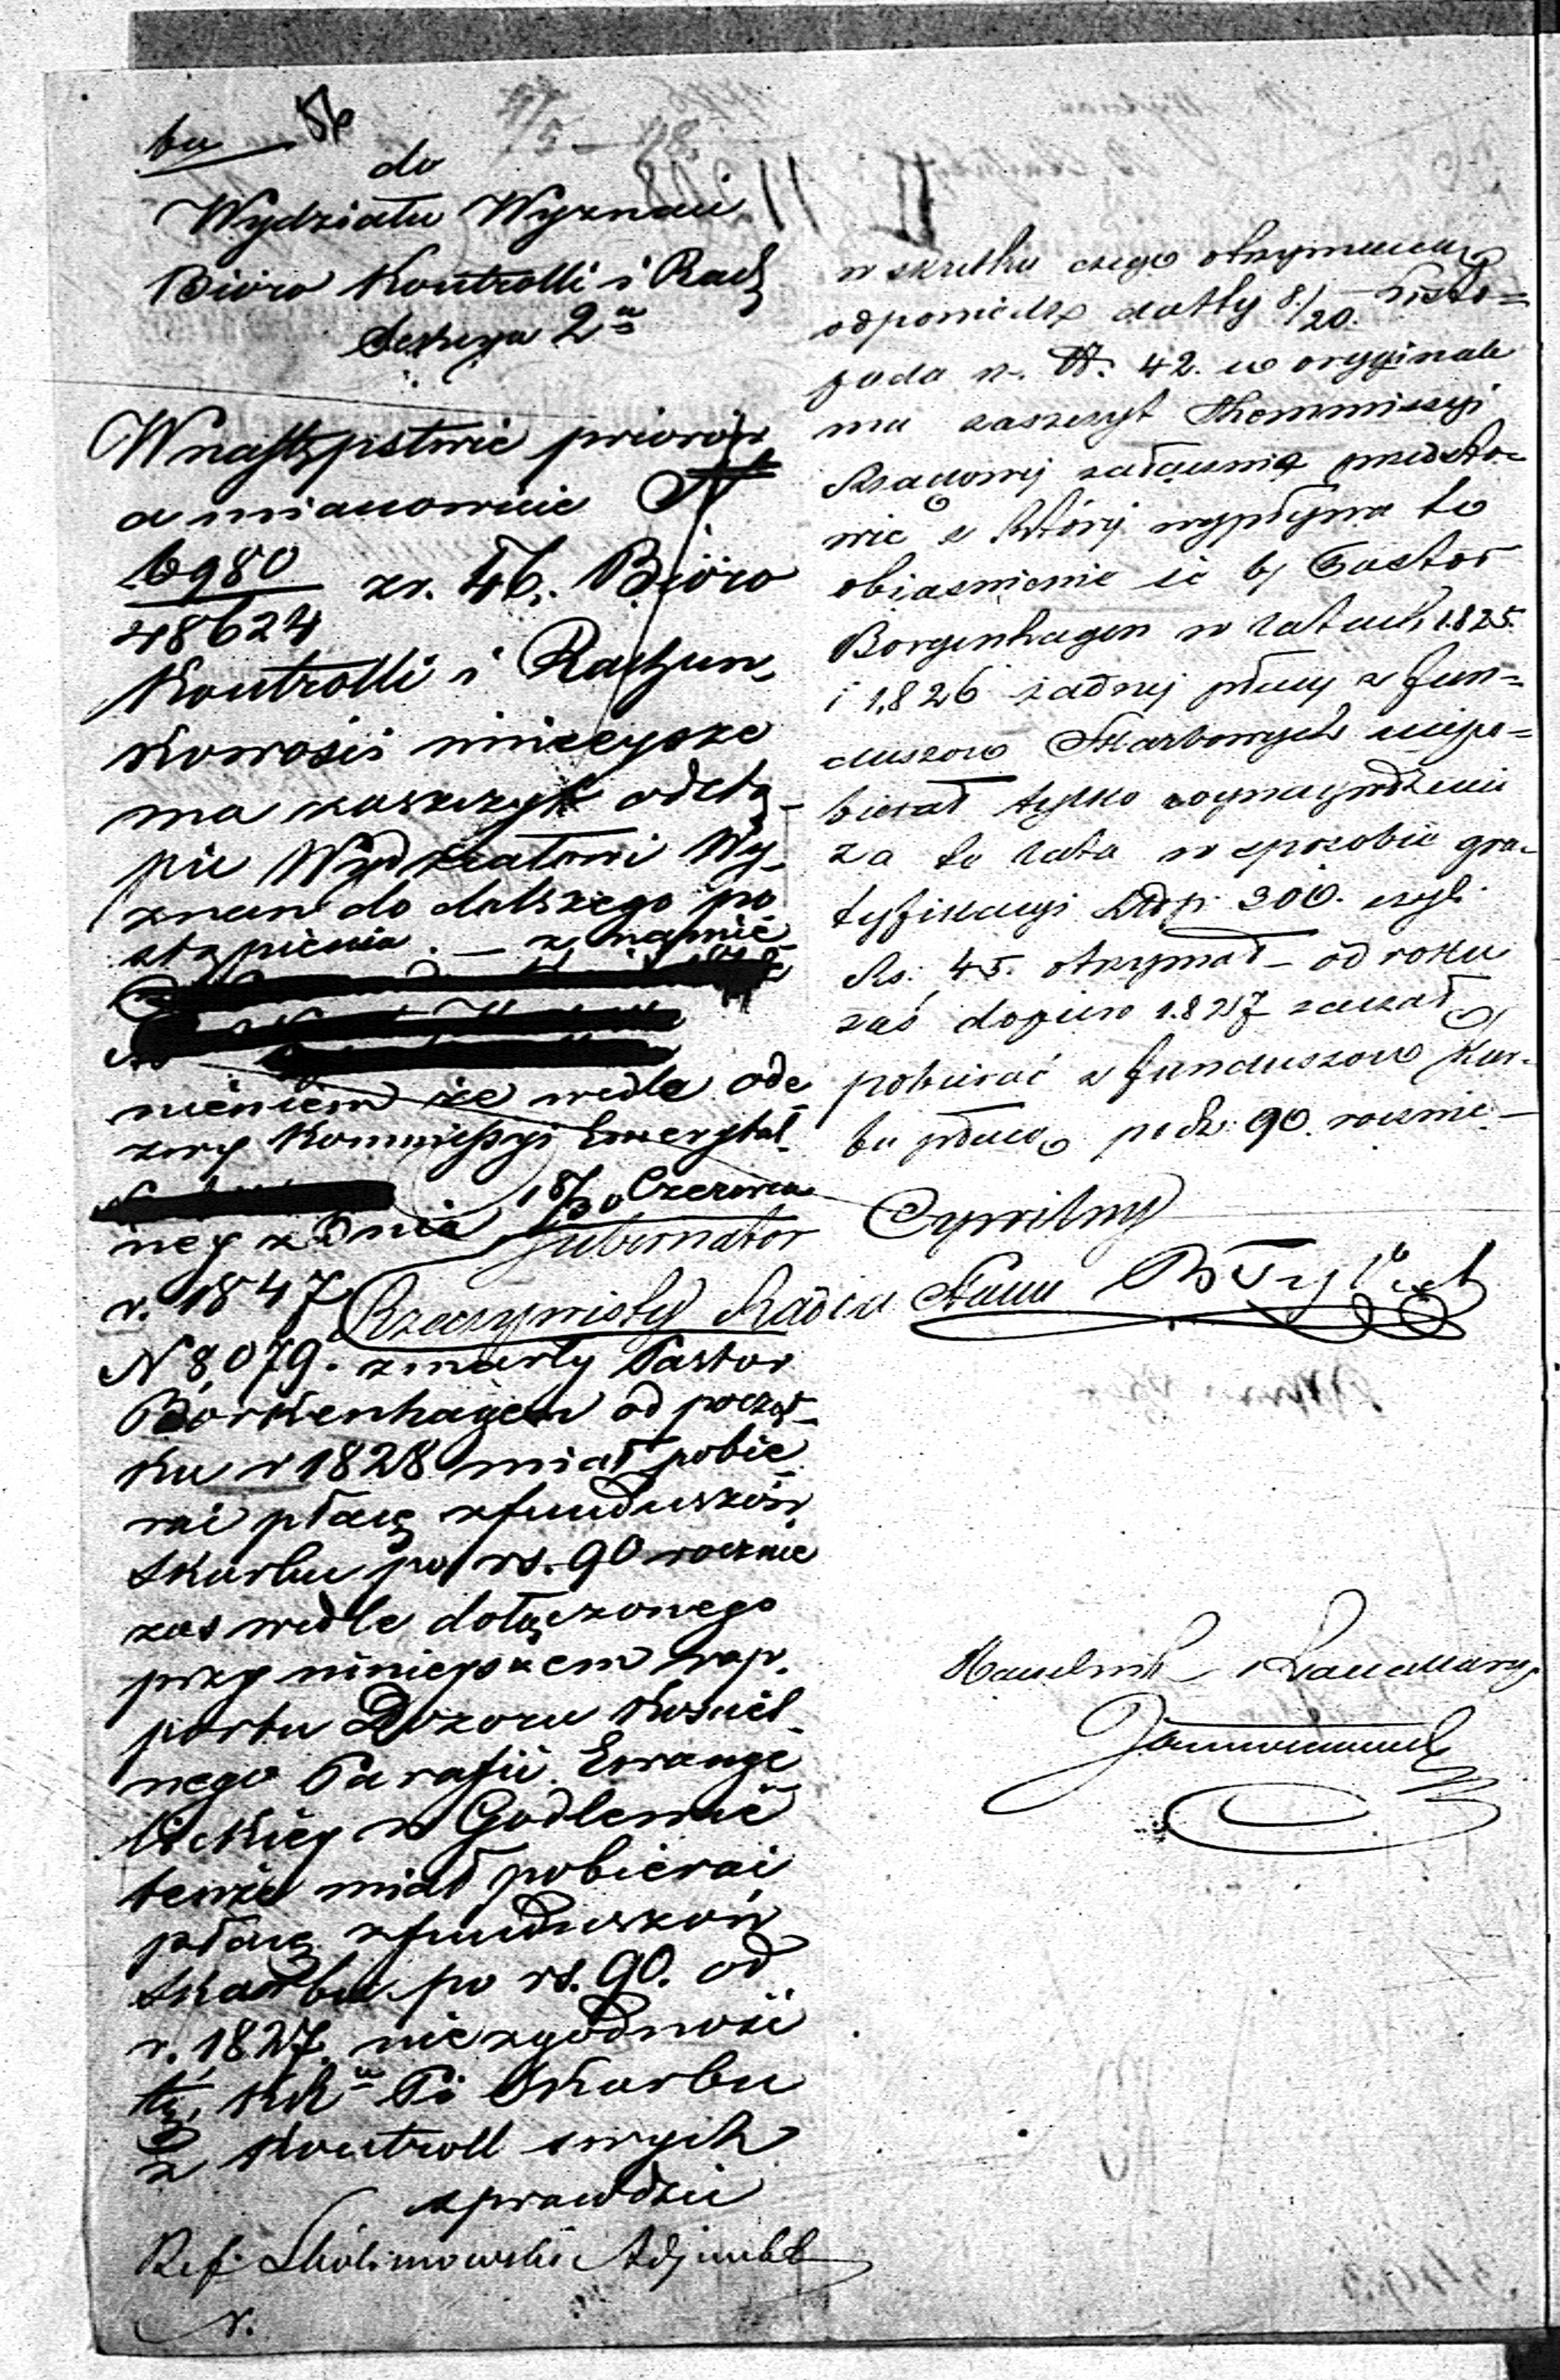 do
Wydziału Wyznań
Bióro Kontrolli i Rach
Sekcya 2ª
W następstwie priorów
a mianowicie N
6980
48624
zr. 46. Bióro
Kontrolli i Rachun
kowości niniejsze
ma zaszczyt odstą
pić Wydziałowi Wy
znań do dalszego po
stąpienia. – z namie
nieniem że wedle ode
zwy Kommissyi Emerytal
ney z dnia 18/30 Czerwca
r. 1847
N 8,079. zmarły Pastor
Borkenhagen od począt
ku r 1828 miał pobie
rać płacę z funduszów
Skarbu po rs. 90 rocznie
zaś wedle dołączonego
przy niniejszem rap.
portu Dozoru Kościel
nego Parafii Ewange
lickiey w Godlewie
tenże miał pobierać
płacę z funduszów
Skarbu po rs. 90. od
r. 1827. niezgodność
tę, Skarbu
z Kontroll swych
sprawdzić
Ref. Skolimowski Adjunkt
w skutku czego otrzymaną
odpowiedź datty 8/20. Listo=
pada n. 42. w oryginale
ma zaszczyt Kommissyi
Rządowej załącznie przedsta=
wić z której wypływa to
objaśnienie iż b. Pastor
Borgenhagen w latach 1825.
i 1826 żadnej płacy z fun=
duszow Skarbowych niepo=
bierał tylko wynagrodzenie
za te lata w sposobie gra=
tyfikacyi Złp. 300. czyli
Rs. 45. otrzymał – od roku
zaś dopiero 1827 zaczął
pobierać z funduszow Skar=
bu płacę po rs. 90. rocznie –
Gubernator Cywilny
Rzeczywisty Radca Stanu
Naczelnik Kancellaryi